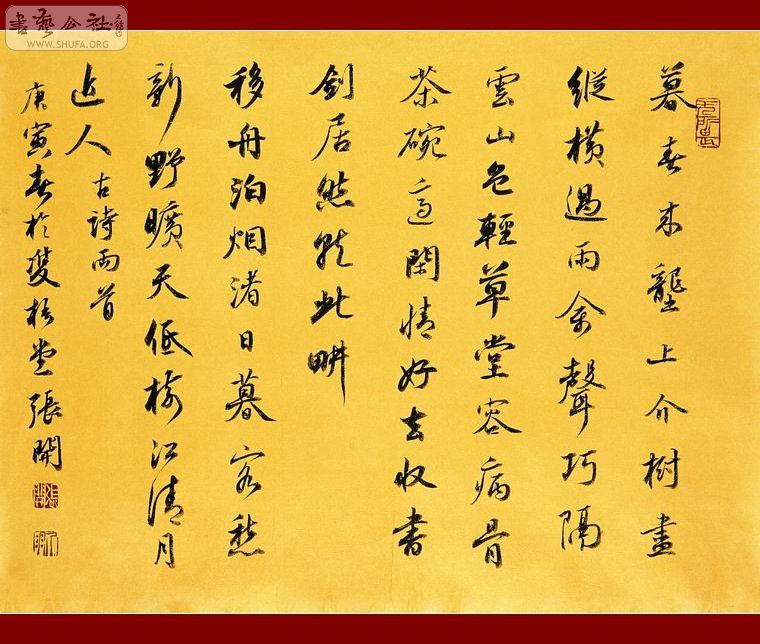 書藝公社
WWW.SHUFA.ORG
暮春來壟上介樹畫
縱橫過雨禽聲巧隔
雲山色輕草堂容病骨
茶碗適閑情好去收書
劍居然就此畊
移舟泊烟渚日暮客愁
新野曠天低樹江清月
近人
古詩兩首
庚寅春於雙堂張開